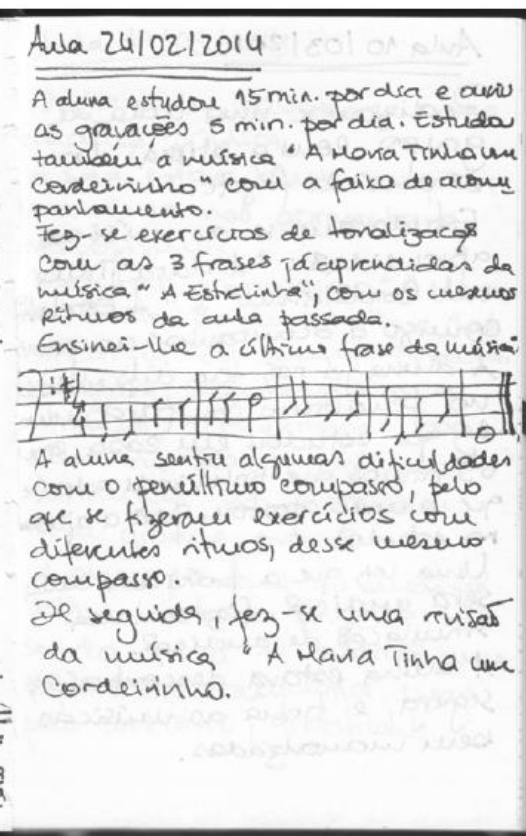 Aula 24/02/2014
A aluna estudou 15 min. por dia e ouviu
as gravações 5 min. por dia. Estudou
também a música "A Maria Tinha um
Cordeirinho" com a faixa de acom
panhamento.
Fez-se exercícios de tonalização
com as 3 frases já aprendidas da
música "A Estrelinha", com os mesmos
ritmos da aula passada.
Ensinei-lhe a última frase da música:
A aluna sentiu algumas dificuldades
com o penúltimo compasso, pelo
que se fizeram exercícios com
diferentes ritmos, desse mesmo
compasso.
De seguida, fez-se uma revisão
da música "A Maria Tinha um
Cordeirinho.